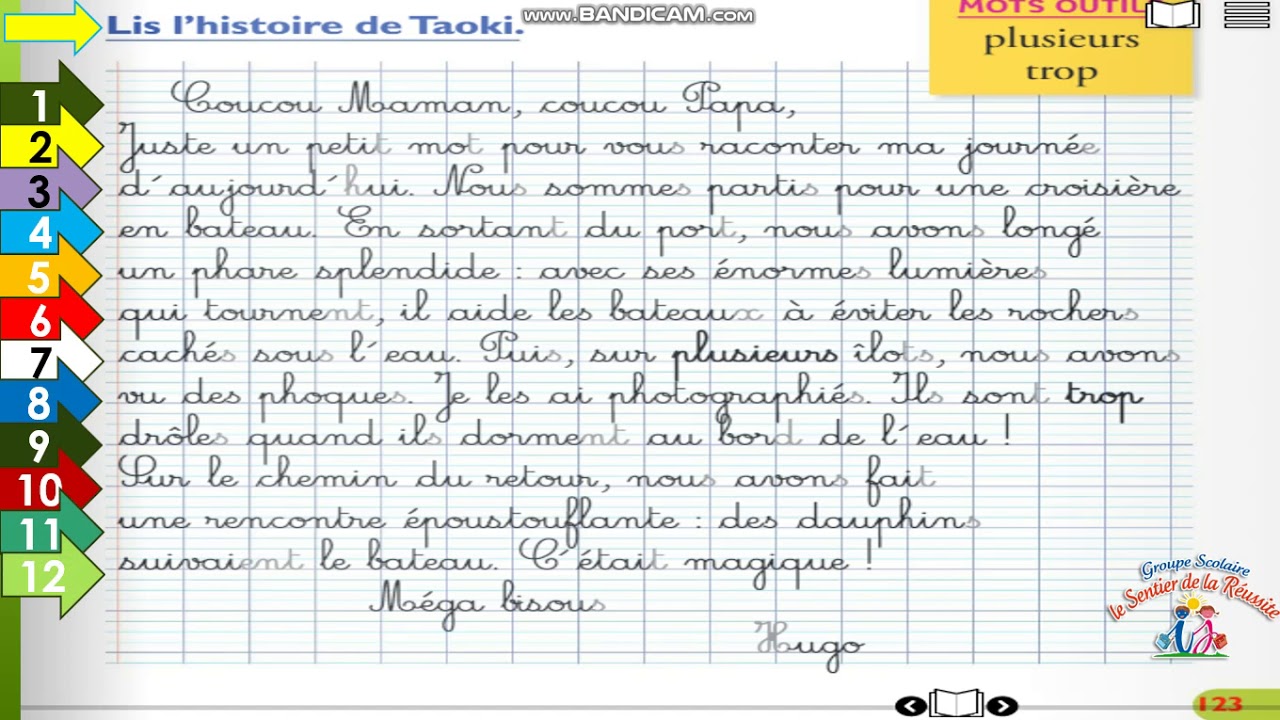 www.BANDICAM.com
Lis l'histoire de Taoki.
MOTS OUTIL
plusieurs
trop
1 Coucou Maman, coucou Papa,
2 Juste un petit mot pour vous raconter ma journée
3 d'aujourd'hui. Nous sommes partis pour une croisière
4 en bateau. En sortant du port, nous avons longé
5 un phare splendide : avec ses énormes lumières
6 qui tournent, il aide les bateaux à éviter les rochers
7 cachés sous l'eau. Puis, sur plusieurs îlots, nous avons
8 vu des phoques. Je les ai photographiés. Ils sont trop
9 drôles quand ils dorment au bord de l'eau !
10 Sur le chemin du retour, nous avons fait
11 une rencontre époustouflante : des dauphins
12 suivaient le bateau. C'était magique !
Méga bisous
Hugo
Groupe Scolaire
le Sentier de la Réussite
123